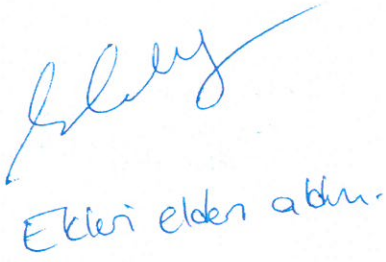 Ekleri elden aldım.